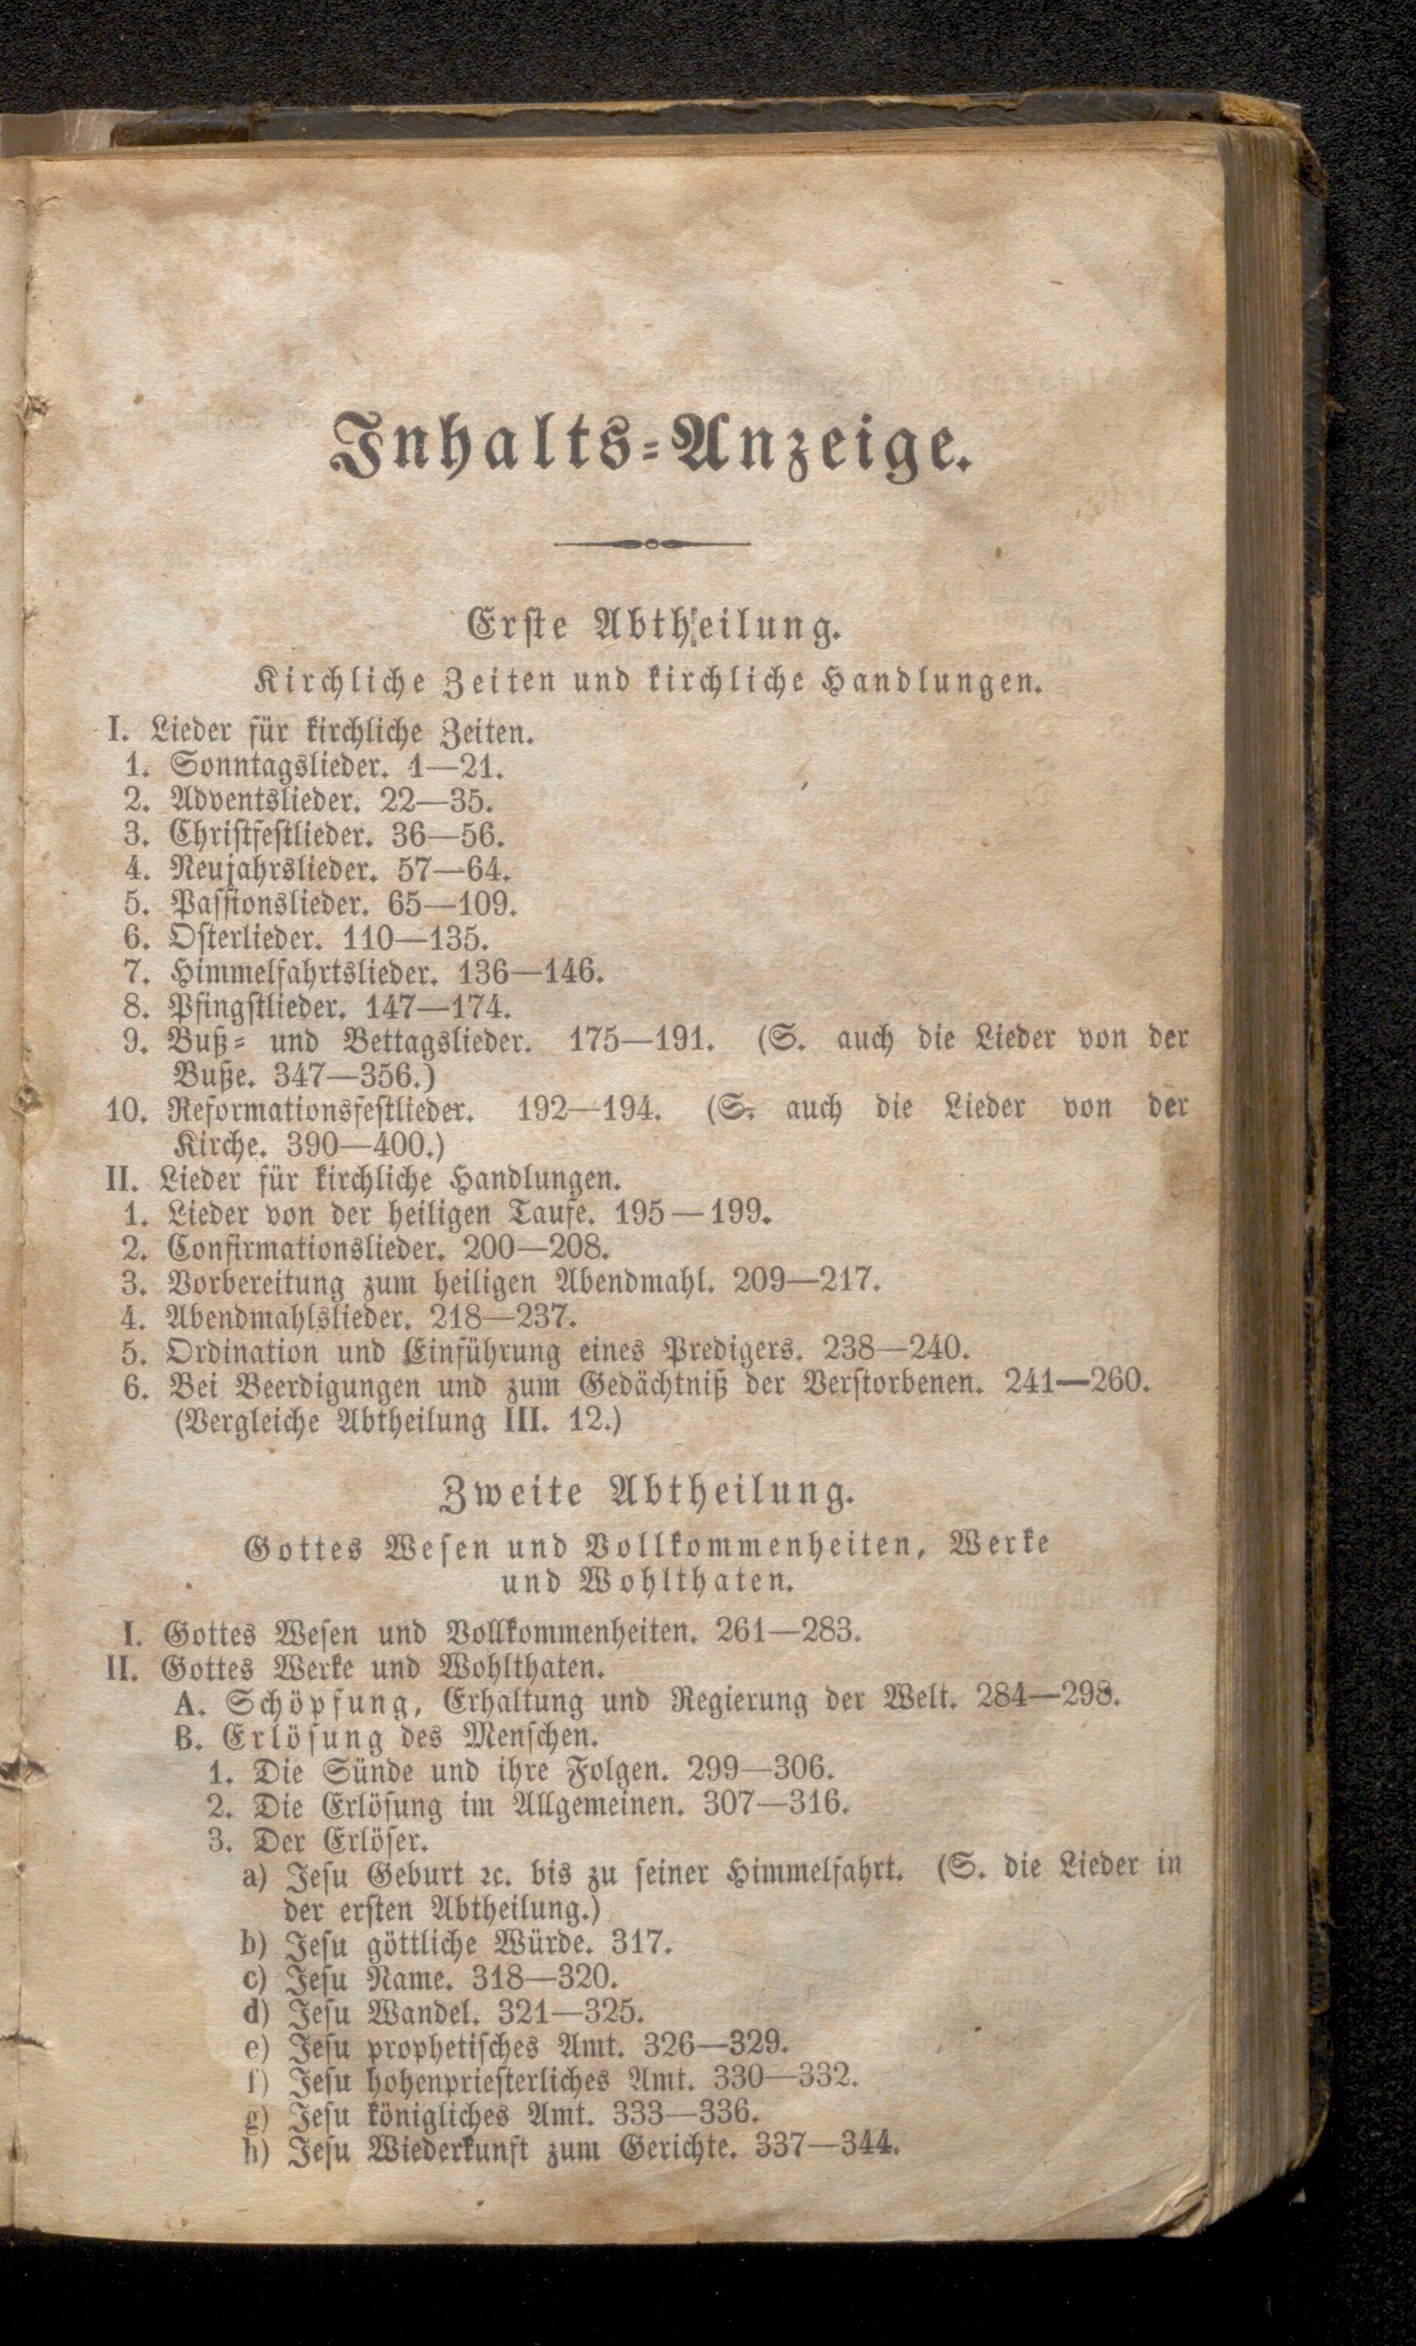 Inhalts-Anzeige.
Erste Abtheilung.
Kirchliche Zeiten und kirchliche Handlungen.
I. Lieder für kirchliche Zeiten.
1. Sonntagslieder. 1—21.
2. Adventslieder. 22—35.
3. Christfestlieder. 36—56.
4. Neujahrslieder. 57—64.
5. Passionslieder. 65—109.
6. Osterlieder. 110—135.
7. Himmelfahrtslieder. 136—146.
8. Pfingstlieder. 147—174.
9. Buß- und Bettagslieder. 175—191. (S. auch die Lieder von der
Buße. 347—356.)
10. Reformationsfestlieder. 192—194. (S. auch die Lieder von der
Kirche. 390—400.)
II. Lieder für kirchliche Handlungen.
1. Lieder von der heiligen Taufe. 195—199.
2. Confirmationslieder. 200—208.
3. Vorbereitung zum heiligen Abendmahl. 209—217.
4. Abendmahlslieder. 218—237.
5. Ordination und Einführung eines Predigers. 238—240.
6. Bei Beerdigungen und zum Gedächtniß der Verstorbenen. 241—260.
(Vergleiche Abtheilung III. 12.)
Zweite Abtheilung.
Gottes Wesen und Vollkommenheiten, Werke
und Wohlthaten.
I. Gottes Wesen und Vollkommenheiten. 261—283.
II. Gottes Werke und Wohlthaten.
A. Schöpfung, Erhaltung und Regierung der Welt. 284—298.
B. Erlösung des Menschen.
1. Die Sünde und ihre Folgen. 299—306.
2. Die Erlösung im Allgemeinen. 307—316.
3. Der Erlöser.
a) Jesu Geburt ꝛc. bis zu seiner Himmelfahrt. (S. die Lieder in
der ersten Abtheilung.)
b) Jesu göttliche Würde. 317.
c) Jesu Name. 318—320.
d) Jesu Wandel. 321—325.
e) Jesu prophetisches Amt. 326—329.
f) Jesu hohenpriesterliches Amt. 330—332.
g) Jesu königliches Amt. 333—336.
h) Jesu Wiederkunft zum Gerichte. 337—344.